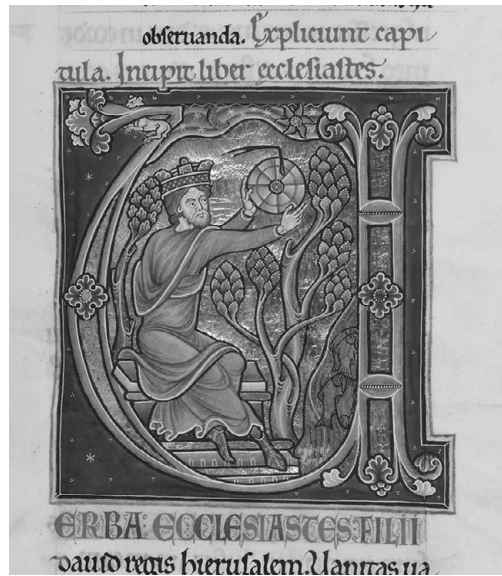 obseruanda. Expliciunt capi
tula. Incipit liber ecclesiastes.
ERBA ECCLESIASTES FILII
dauid regis hierusalem. Uanitas ua